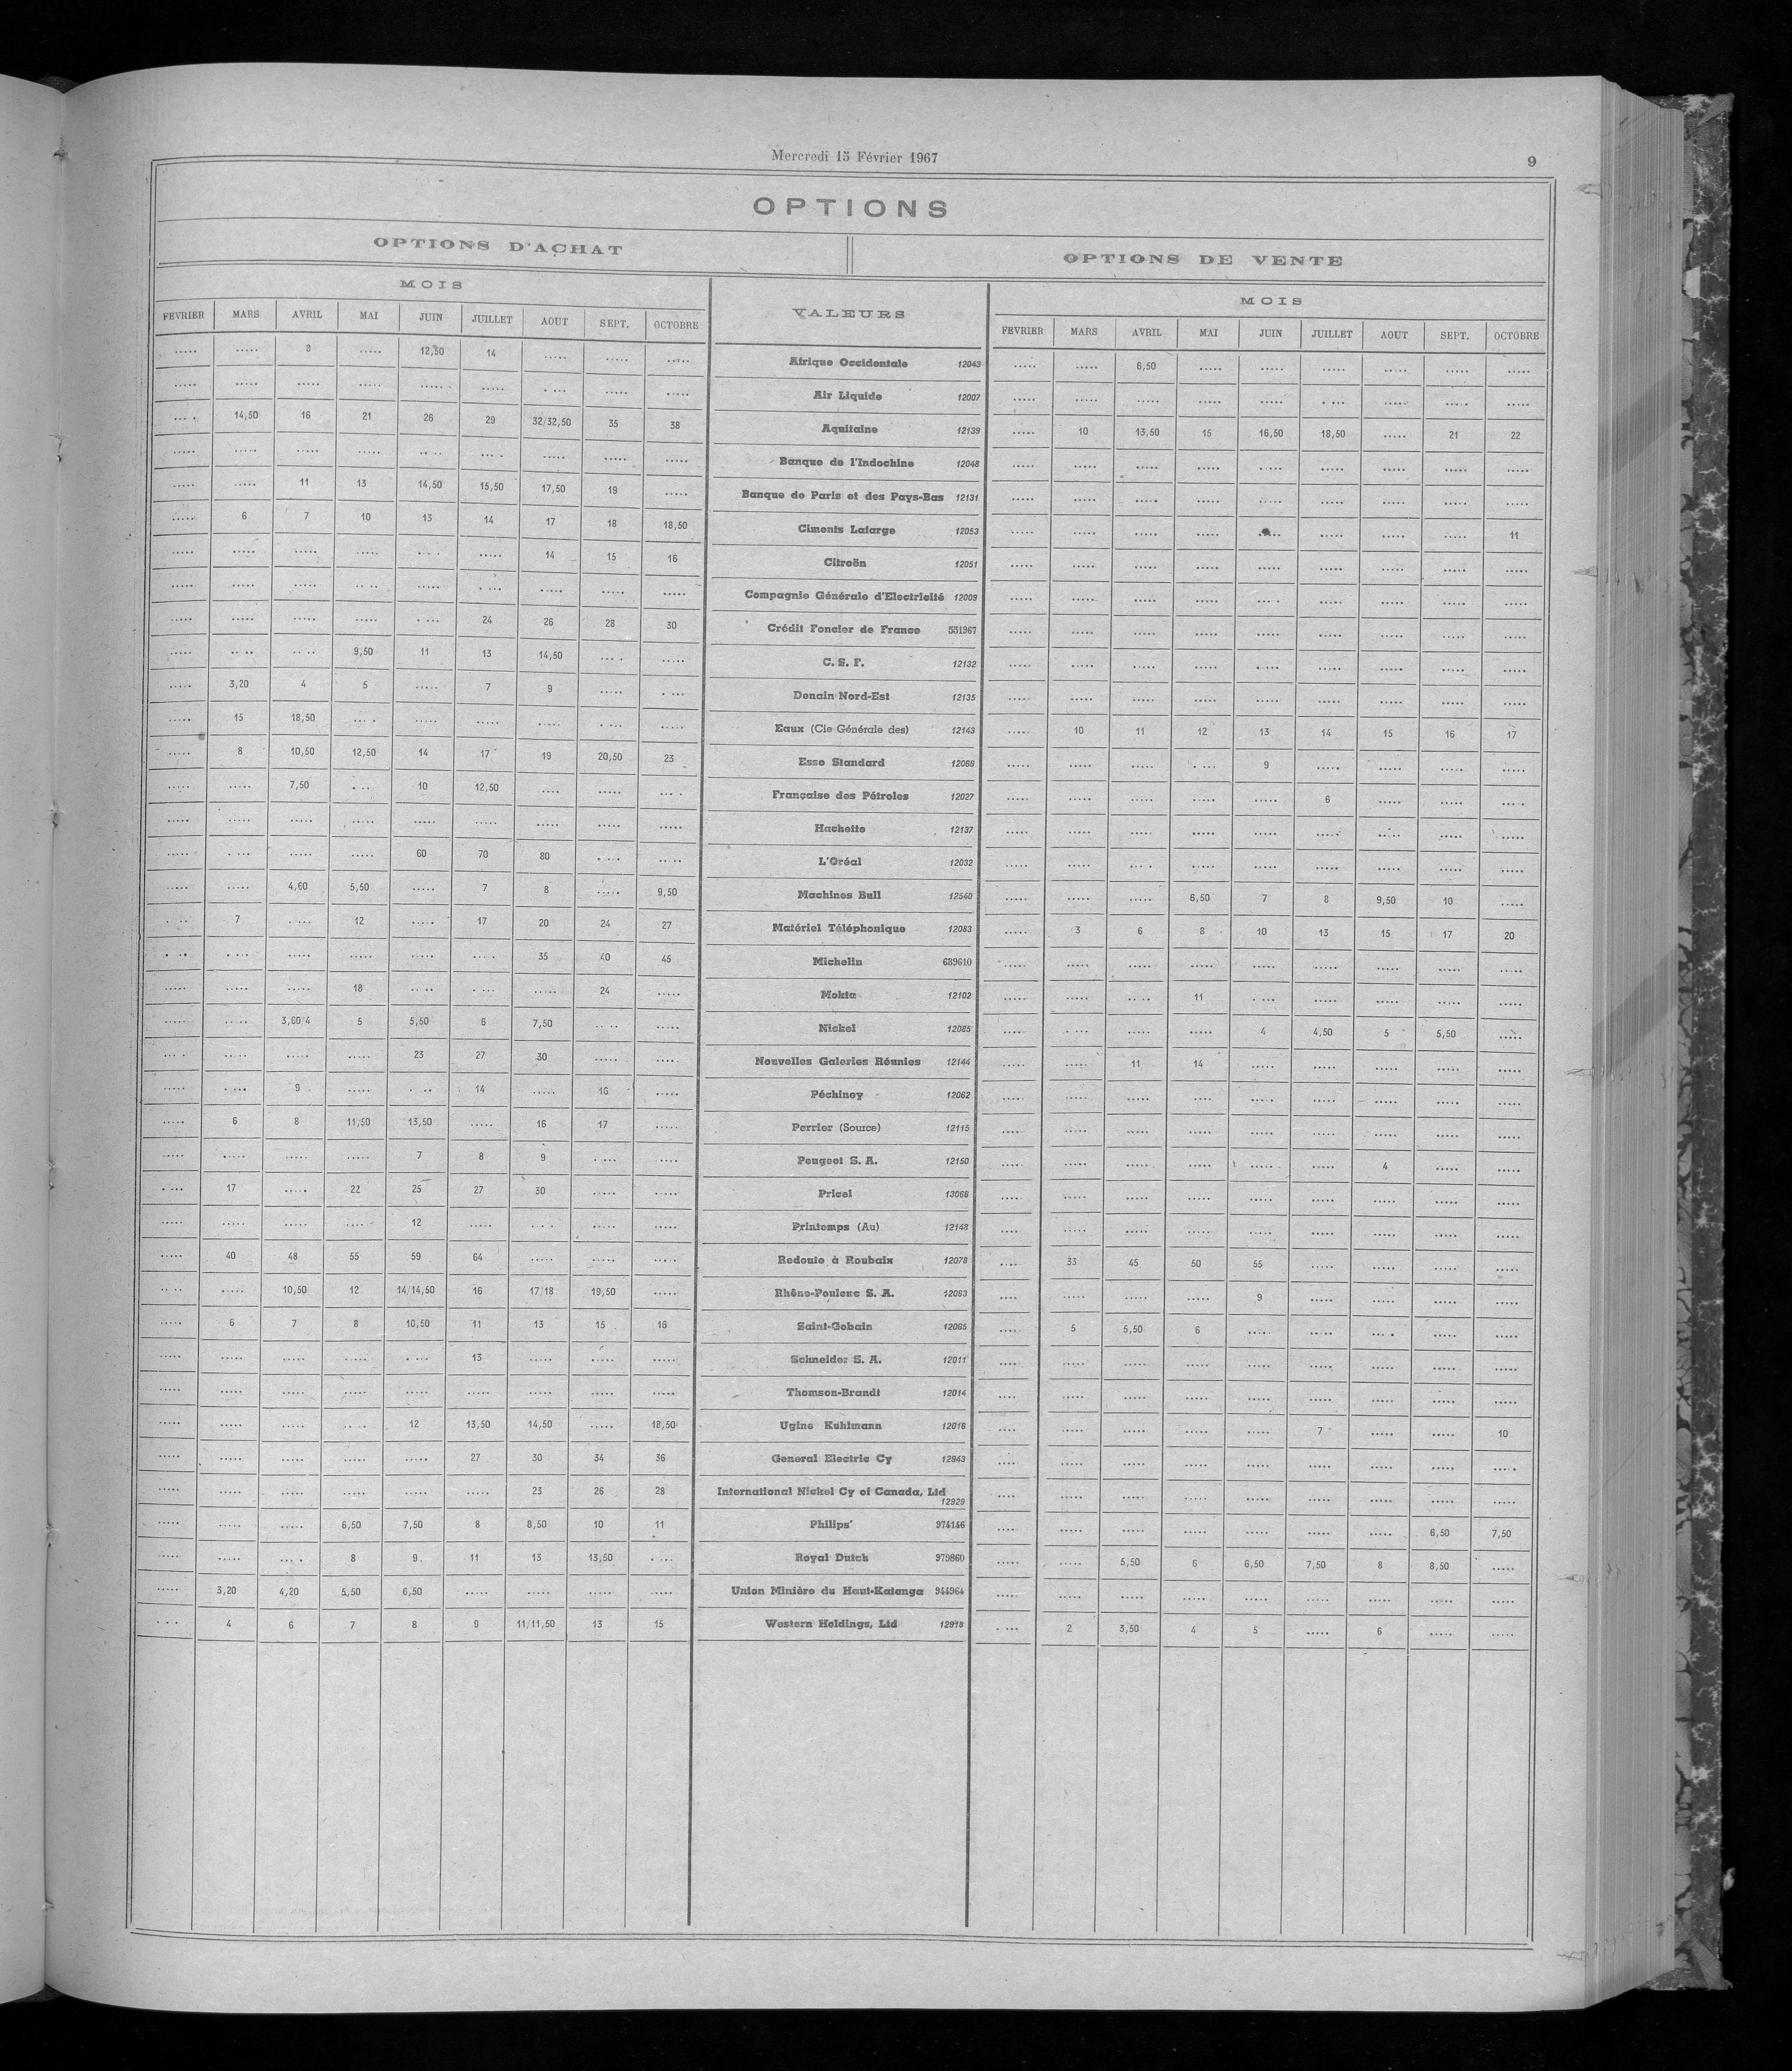 Mercredi 15 Février 1967
9
OPTIONS
OPTIONS D'ACHAT
OPTIONS DE VENTE
MOIS VALEURS MOIS
FEVRIER MARS AVRIL MAI JUIN JUILLET AOUT SEPT. OCTOBRE FEVRIER MARS AVRIL MAI JUIN JUILLET AOUT SEPT. OCTOBRE
..... ..... 8 ..... 12,50 14 ..... ..... ..... Afrique Occidentale 12043 ..... ..... 6,50 ..... ..... ..... ..... ..... .....
..... ..... ..... ..... ..... ..... ..... ..... ..... Air Liquide 12007 ..... ..... ..... ..... ..... ..... ..... ..... .....
..... 14,50 16 21 26 29 32/32,50 35 38 Aquitaine 12139 ..... 10 13,50 15 16,50 18,50 ..... 21 22
..... ..... ..... ..... ..... ..... ..... ..... ..... Banque de l'Indochine 12048 ..... ..... ..... ..... ..... ..... ..... ..... .....
..... ..... 11 13 14,50 15,50 17,50 19 ..... Banque de Paris et des Pays-Bas 12131 ..... ..... ..... ..... ..... ..... ..... ..... .....
..... 6 7 10 13 14 17 18 18,50 Ciments Lafarge 12053 ..... ..... ..... ..... ..... ..... ..... ..... 11
..... ..... ..... ..... ..... ..... 14 15 16 Citroën 12051 ..... ..... ..... ..... ..... ..... ..... ..... .....
..... ..... ..... ..... ..... ..... ..... ..... ..... Compagnie Générale d'Electricité 12009 ..... ..... ..... ..... ..... ..... ..... ..... .....
..... ..... ..... ..... ..... 24 26 28 30 Crédit Foncier de France 531967 ..... ..... ..... ..... ..... ..... ..... ..... .....
..... ..... ..... 9,50 11 13 14,50 ..... ..... C. S. F. 12132 ..... ..... ..... ..... ..... ..... ..... ..... .....
..... 3,20 4 5 ..... 7 9 ..... ..... Denain Nord-Est 12135 ..... ..... ..... ..... ..... ..... ..... ..... .....
..... 15 18,50 ..... ..... ..... ..... ..... ..... Eaux (Cie Générale des) 12143 ..... 10 11 12 13 14 15 16 17
..... 8 10,50 12,50 14 17 19 20,50 23 Esso Standard 12068 ..... ..... ..... ..... 9 ..... ..... ..... .....
..... ..... 7,50 ..... 10 12,50 ..... ..... ..... Française des Pétroles 12027 ..... ..... ..... ..... ..... 6 ..... ..... .....
..... ..... ..... ..... ..... ..... ..... ..... ..... Hachette 12137 ..... ..... ..... ..... ..... ..... ..... ..... .....
..... ..... ..... ..... 60 70 80 ..... ..... L'Oréal 12032 ..... ..... ..... ..... ..... ..... ..... ..... .....
..... ..... 4,60 5,50 ..... 7 8 ..... 9,50 Machines Bull 12540 ..... ..... ..... 6,50 7 8 9,50 10 .....
..... 7 ..... 12 ..... 17 20 24 27 Matériel Téléphonique 12083 ..... 3 6 8 10 13 15 17 20
..... ..... ..... ..... ..... ..... 35 40 45 Michelin 639610 ..... ..... ..... ..... ..... ..... ..... ..... .....
..... ..... ..... 18 ..... ..... ..... 24 ..... Mokta 12102 ..... ..... ..... 11 ..... ..... ..... ..... .....
..... ..... 3,60/4 5 5,50 6 7,50 ..... ..... Nickel 12085 ..... ..... ..... ..... 4 4,50 5 5,50 .....
..... ..... ..... ..... 23 27 30 ..... ..... Nouvelles Galeries Réunies 12144 ..... ..... 11 14 ..... ..... ..... ..... .....
..... ..... 9 ..... ..... 14 ..... 16 ..... Péchiney 12062 ..... ..... ..... ..... ..... ..... ..... ..... .....
..... 6 8 11,50 13,50 ..... 16 17 ..... Perrier (Source) 12115 ..... ..... ..... ..... ..... ..... ..... ..... .....
..... ..... ..... ..... 7 8 9 ..... ..... Peugeot S. A. 12150 ..... ..... ..... ..... ..... ..... 4 ..... .....
..... 17 ..... 22 25 27 30 ..... ..... Pricel 13066 ..... ..... ..... ..... ..... ..... ..... ..... .....
..... ..... ..... ..... 12 ..... ..... ..... ..... Printemps (Au) 12148 ..... ..... ..... ..... ..... ..... ..... ..... .....
..... 40 48 55 59 64 ..... ..... ..... Redoute à Roubaix 12078 ..... 33 45 50 55 ..... ..... ..... .....
..... ..... 10,50 12 14/14,50 16 17/18 19,50 ..... Rhône-Poulenc S. A. 12063 ..... ..... ..... ..... 9 ..... ..... ..... .....
..... 6 7 8 10,50 11 13 15 16 Saint-Gobain 12065 ..... 5 5,50 6 ..... ..... ..... ..... .....
..... ..... ..... ..... ..... 13 ..... ..... ..... Schneider S. A. 12011 ..... ..... ..... ..... ..... ..... ..... ..... .....
..... ..... ..... ..... ..... ..... ..... ..... ..... Thomson-Brandt 12014 ..... ..... ..... ..... ..... ..... ..... ..... .....
..... ..... ..... ..... 12 13,50 14,50 ..... 18,50 Ugine Kuhlmann 12016 ..... ..... ..... ..... ..... 7 ..... ..... 10
..... ..... ..... ..... ..... 27 30 34 36 General Electric Cy 12943 ..... ..... ..... ..... ..... ..... ..... ..... .....
..... ..... ..... ..... ..... ..... 23 26 28 International Nickel Cy of Canada, Ltd 12929 ..... ..... ..... ..... ..... ..... ..... ..... .....
..... ..... ..... 6,50 7,50 8 8,50 10 11 Philips' 974146 ..... ..... ..... ..... ..... ..... ..... 6,50 7,50
..... ..... ..... 8 9 11 13 13,50 ..... Royal Dutch 979860 ..... ..... 5,50 6 6,50 7,50 8 8,50 .....
..... 3,20 4,20 5,50 6,50 ..... ..... ..... ..... Union Minière du Haut-Katanga 944964 ..... ..... ..... ..... ..... ..... ..... ..... .....
..... 4 6 7 8 9 11/11,50 13 15 Western Holdings, Ltd 12918 ..... 2 3,50 4 5 ..... 6 ..... .....